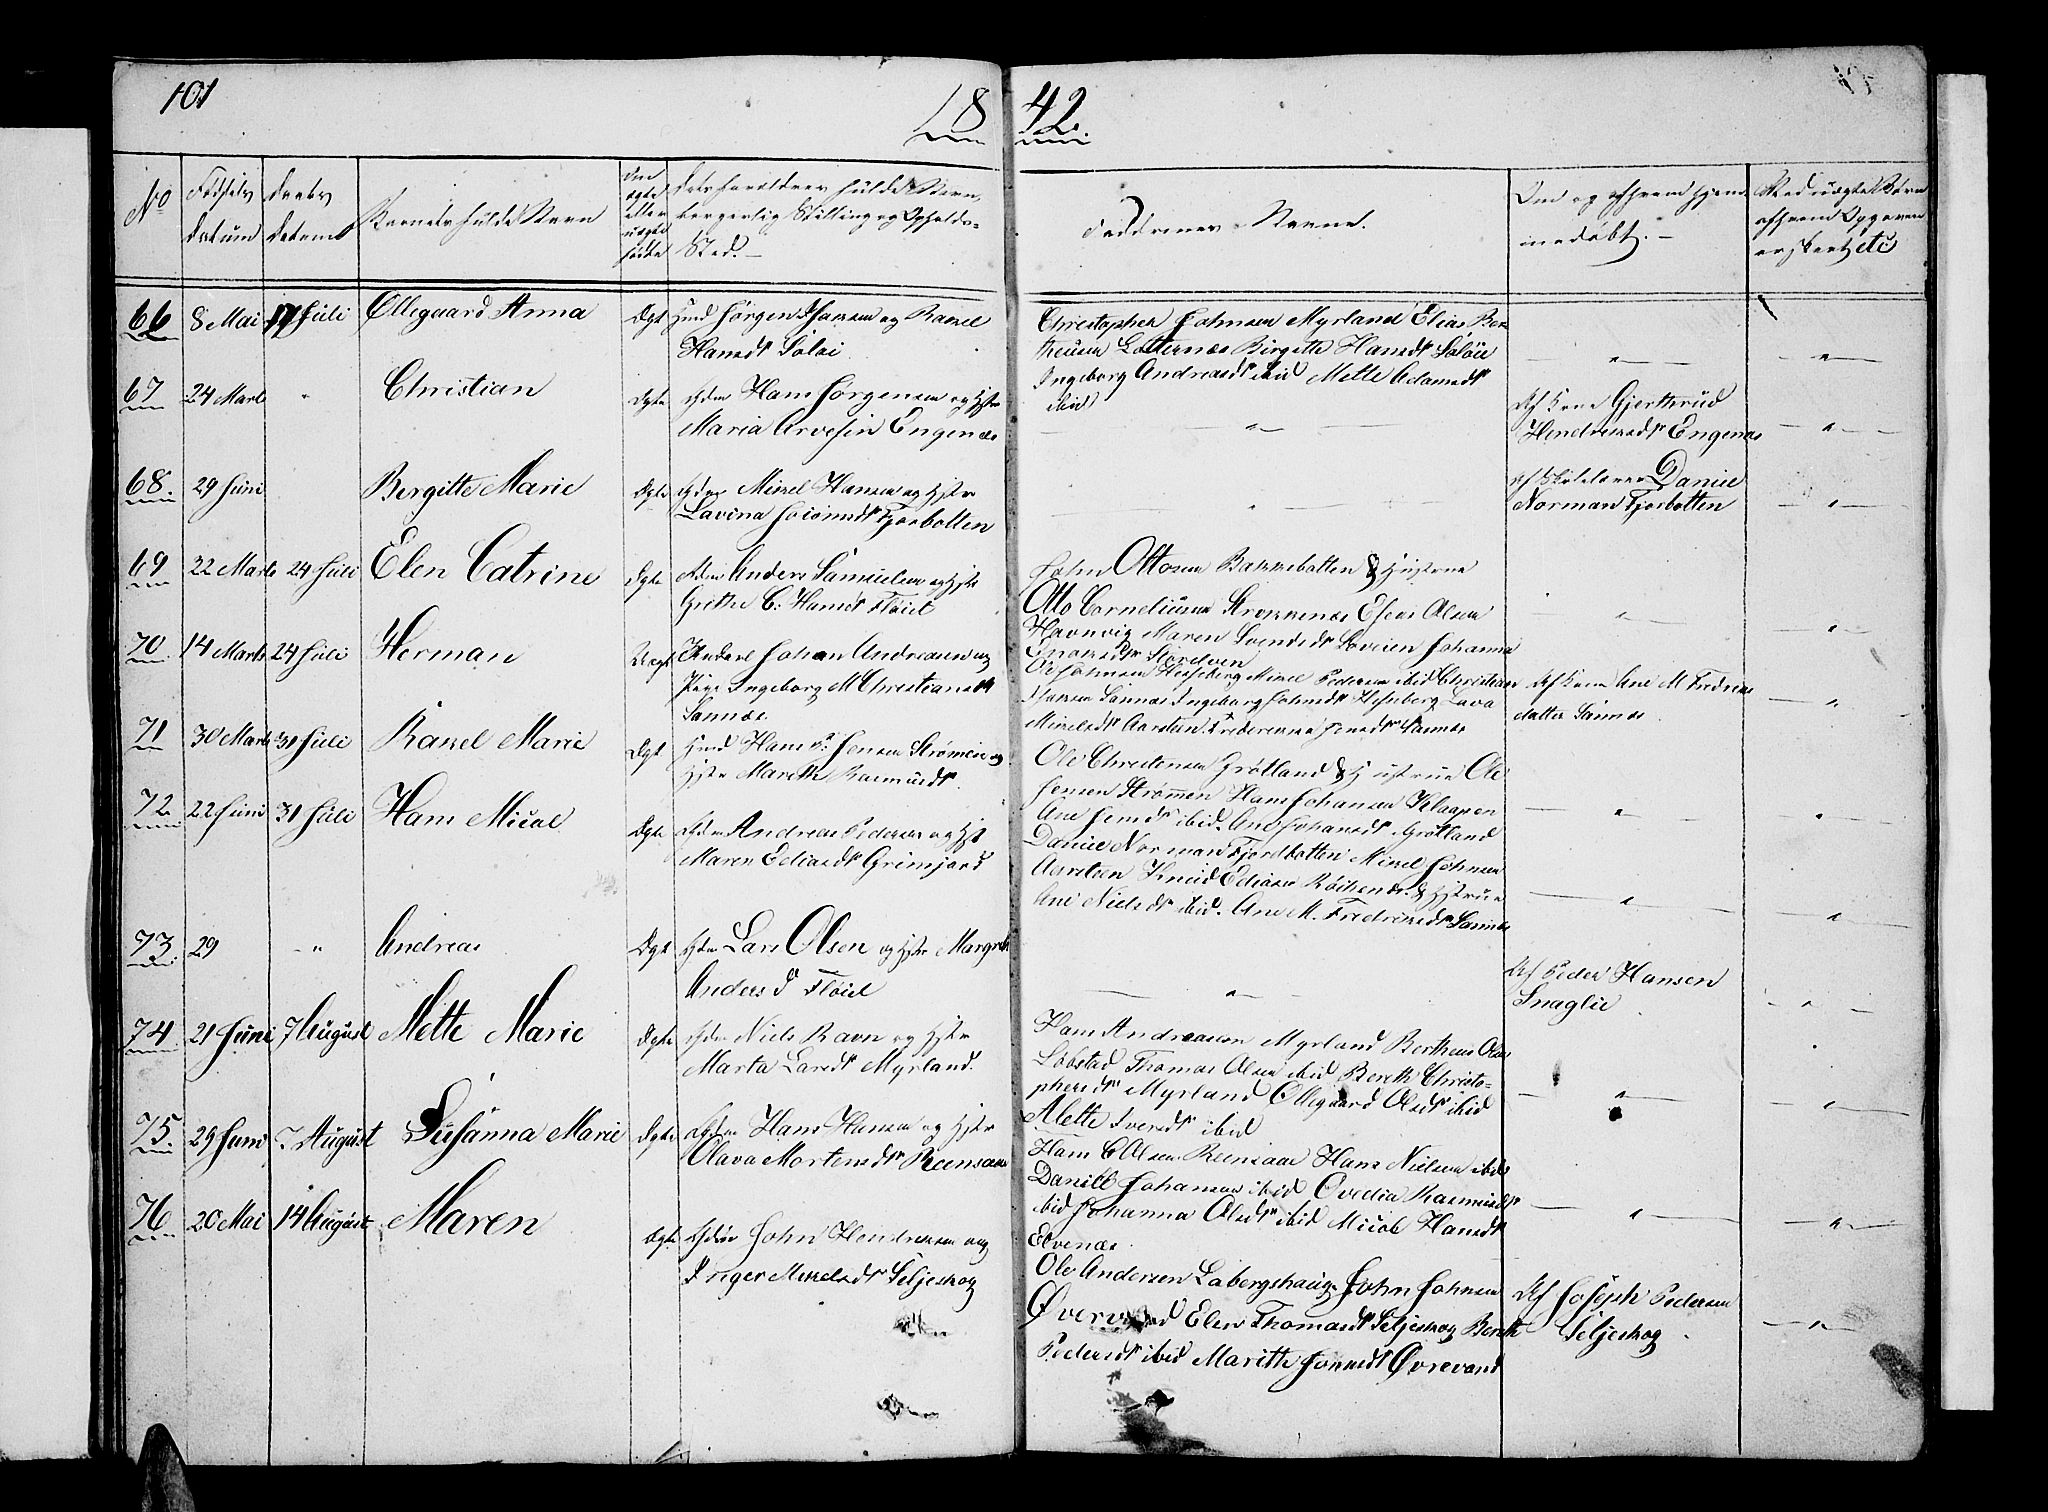 101
18 42.
No
Fødsels datum
Daabs datum
Barnets fulde Navn
Om ægte eller uægte fødte
Forældres fulde Navn,
borgerlig Stilling og Opholds-
Sted.
Faddernes Navne.
Om og af hvem hjem-
medøbt.
Ved uægte Børn
af hvem Opgaven
etc
66 8 Mai 17 Juli Ellegaard Anna Ægt Jørgen og Rakel
Hansdt Soløi
Christopher Johnsen Myrland Elias Ber
theusen Birgitte Hansdt Soløie
Ingeborg Andreasdt ibid Mette Adamsdt
ibid
67 24 Marts " Christian Ægte Hans Jørgensen og Hst
Maria Arvesin Engenæs
Gjerthrud
Hendriksdt Engenæs
68. 29 Juni Bergitte Marie Ægte Mikel Hansen og Hstr
Lavina Fjorbotten
Af Skolelærer Daniel
Norman Fjorbotten
69 22 Marts 24 Juli Elen Catrine Ægte Anders Samuelsen og Hst
Grethe C. Hansdt Fløiel
John Ottosen Bakkebotten & Hustrue
Otto Corneliusen Strokkenæs Esaias Olsen
Havnvig Maren Svendsdt Løveien Johanna
70 14 Marts 24 Juli Herman Uægt Johan Andreasen og
Pige Ingeborg M Christiansdt
Sannæs
Johnsen Hesseberg Mikel Pedersen ibid Christian
Sannæs Ingeborg Johnsdt Hesseberg Lava
Mikelsdt Aarsteen Frederikke Jensdt Sannæs
Af Ane M Fredriks
datter Sannæs
71 30 Marts 31 Juli Rakel Marie Ægt Hans P. Jensen Strømmen og
Hstr Mareth Rasmusdt.
Ole Christensen Grøtland & Hustrue Ole
Jensen Strømmen Hans Johansen Klaapen
Ane Jensdt ibid. Ane Johansdt Grøtland
72 22 Juni 31 Juli Hans Micael Ægte Andreas Pedersen og Hst
Maren Eliasdt Grimjord
Daniel Norman Fjordbotten Mikel Johnsen
Aarsteen Knud Eliasen & Hstrue
Ane Nielsdt ibid. Ane M. Fredriksdt Sannæs
73. 29 " Andreas Ægt Lars Olsen og Hstr Margreth
Andersd Fløiel
Af Peder Hansen
Snaglie
74 21 Juni 7 August Mette Marie Ægte Niels Ravn og Hstr
Marta Larsdt Myrland.
Hans Andreasen Myrland Bertheus Olsen
Løbstad Thomas Olsen ibid Bereth Christo-
phersdt Myrland Ollegaard Olsdt ibid
Mette Iversdt ibid
75. 29 Juni 7 August Susanna Marie Ægte Hans Hansen og Hstr
Olava Mortensdt Reensaae
Hans C Olsen Reensaae Hans Nielsen ibid
Daniel Johansen ibid Ovedia Rasmusdt
ibid Johanna Olsdt ibid Micol Hansdt
Elvenæs.
76 20 Mai 14 August Maren Ægte John Hendriksen og
Inger Mikelsdt Seljeskog
Ole Andersen Labergshaug John Johnsen
Elen Thomasdt Seljeskog Bereth
Pedersdt ibid Marith Jonsdt Øvrevand
Af Joseph Pedersen
Seljeskog